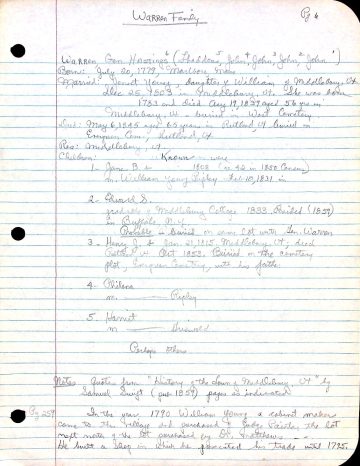 Warren Family
Pg 6
Warren, Gen. Hastings 6 (Thaddeus 5, John 4, John 3, John 2, John 1)
Born: July 20, 1779, Marlboro, Mass
Married: Janet Young, daughter of William of Middlebury, Vt
Dec 25, 1803 in Middlebury, Vt. She was born
1783 and died Aug 19, 1839 aged 56 yrs in
Middlebury, Vt. buried in West Cemetery
Died: May 6, 1845 aged 65 years in Rutland, Vt. Buried in
Evergreen Cem., Rutland, Vt
Res: Middlebury, Vt.
Children: Known were
1. Jane B. b 1808 (ae 42 in 1850 Census)
m. William Young Ripley Feb 10, 1831 in
2. Edward S.
graduate of Middlebury College 1833 Resided (1859)
in Buffalo, N.Y.
Buried on same lot with Gen. Warren
3. Henry J. b Jan 21, 1815, Middlebury, Vt; died
Rutland, Vt Oct 1853. Buried in the cemetery
plot, Evergreen Cemetery, with his father
4. Philena
m. Ripley
5. Harriet
m. Griswold
Perhaps others
Notes Quotes from "History of the Town of Middlebury, Vt" by
Samuel Swift (pub 1859) pages as indicated
Pg 259 In the year 1790 William Young a cabinet maker
came to the village and purchased of Judge Painter the lot
next north of the lot purchased by Dr. Matthews...
He built a shop in which he prosecuted his trade until 1795.